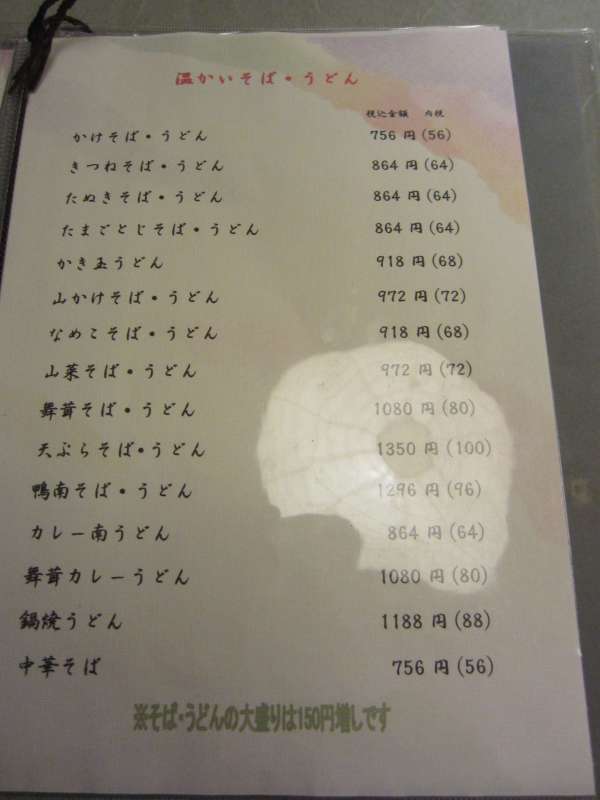 温かいそば・うどん
税込金額 内税
かけそば・うどん 756 円(56)
きつねそば・うどん 864 円(64)
たぬきそば・うどん 864 円(64)
たまごとじそば・うどん 864 円(64)
かき玉うどん 918 円(68)
山かけそば・うどん 972 円(72)
なめこそば・うどん 918 円(68)
山菜そば・うどん 972 円(72)
舞茸そば・うどん 1080 円(80)
天ぷらそば・うどん 1350 円(100)
鴨南そば・うどん 1296 円(96)
カレー南うどん 864 円(64)
舞茸カレーうどん 1080 円(80)
鍋焼うどん 1188 円(88)
中華そば 756 円(56)
※そば・うどんの大盛りは150円増しです